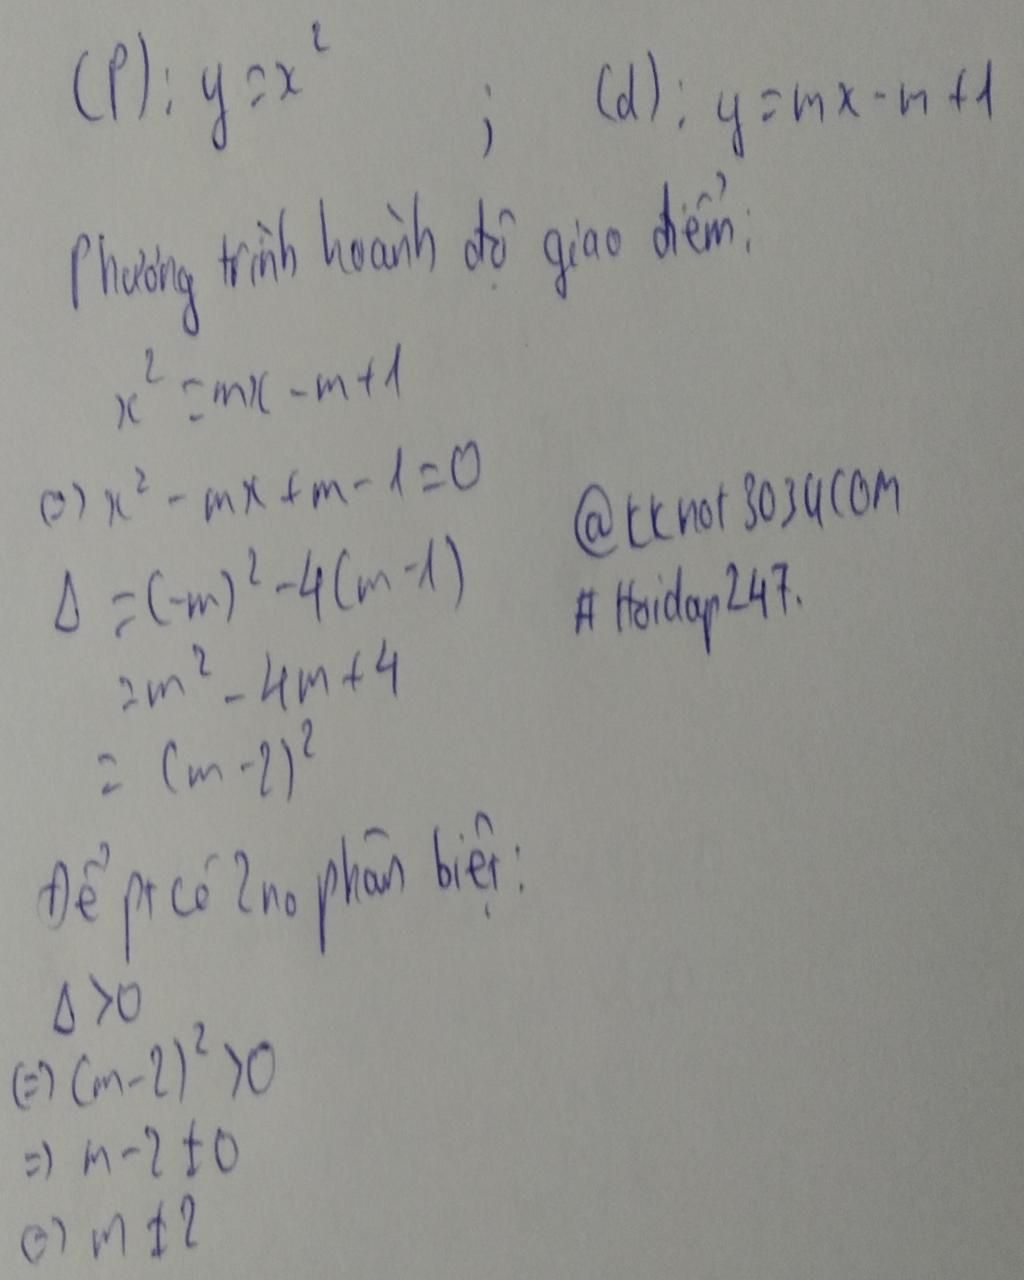 (P): y=x² ; (d): y=mx-m+1
Phương trình hoành độ giao điểm:
x²=mx-m+1
<=> x²-mx+m-1=0
Δ=(-m)²-4(m-1)
=m²-4m+4
=(m-2)²
@kknot3034COM
#Hoidap247.
Để pt có 2 no phân biệt:
Δ>0
<=> (m-2)²>0
=> m-2≠0
<=> m≠2